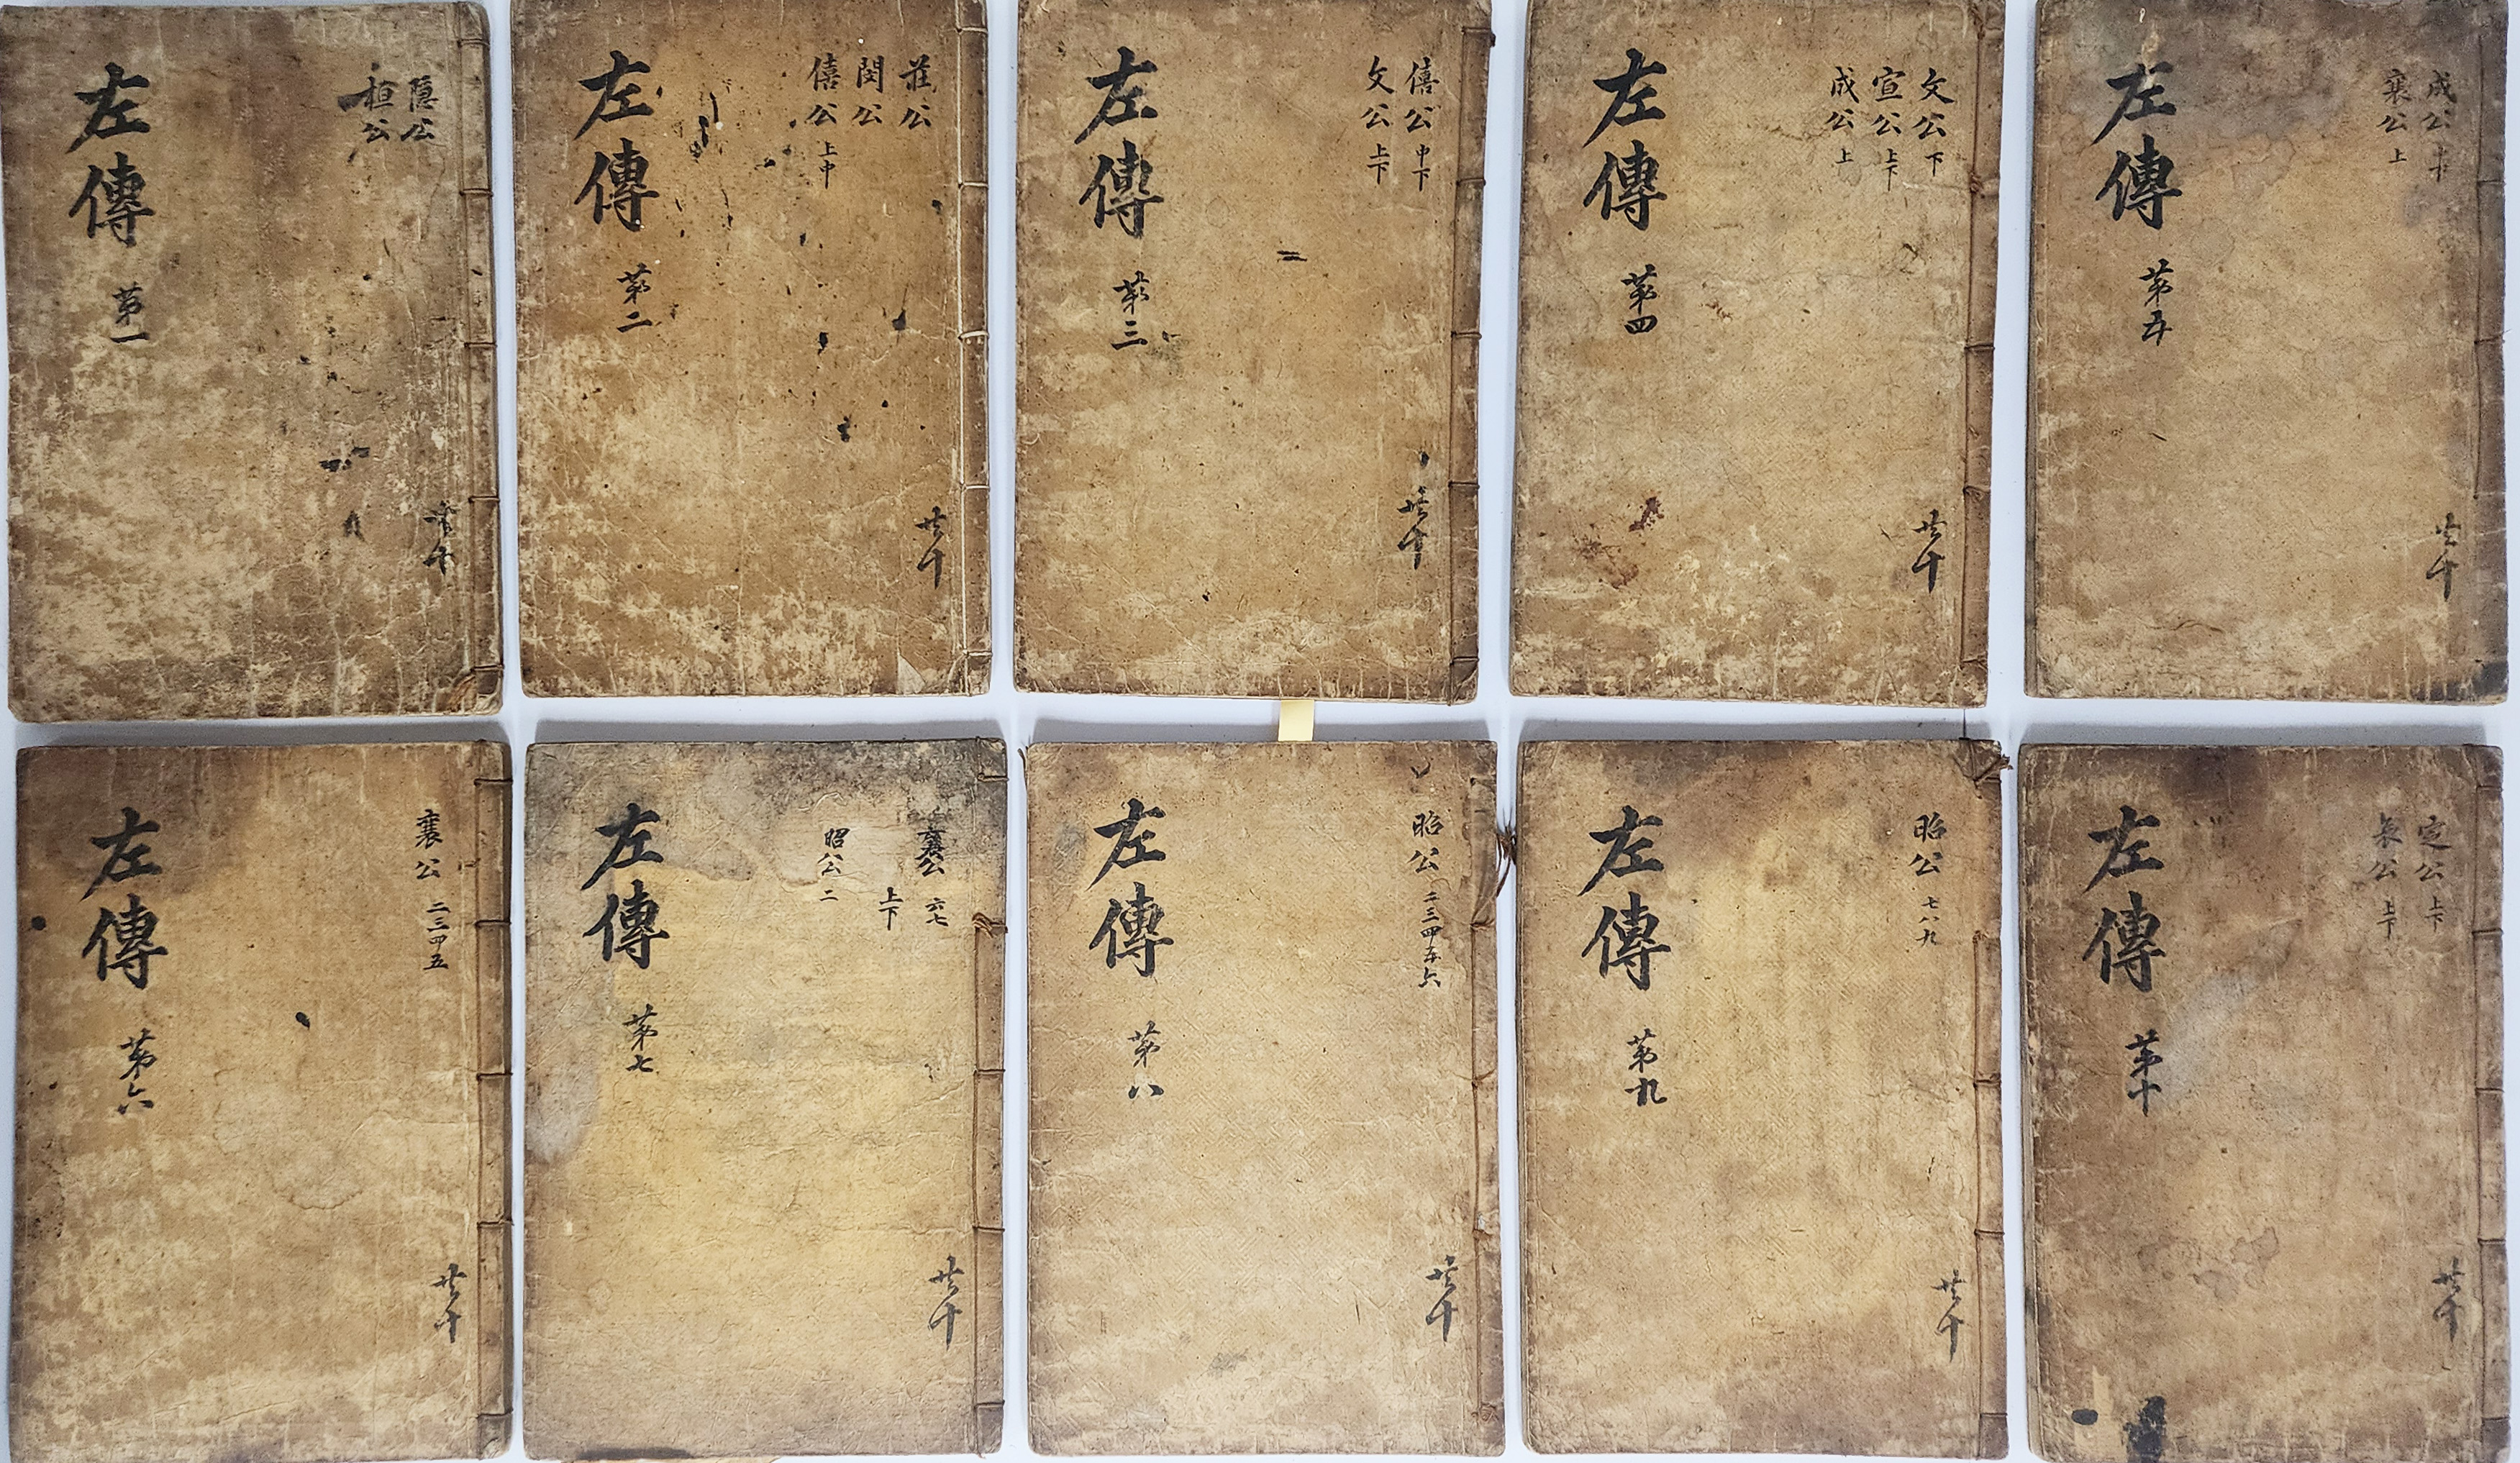 隱公
桓公
左傳 第一
共十
莊公
閔公
僖公 上中
左傳 第二
共十
僖公 中下
文公 上下
左傳 第三
共十
文公 下
宣公 上下
成公 上
左傳 第四
共十
成公
襄公 上
左傳 第五
共十
襄公 二三四五
左傳 第六
共十
襄公 六七
上下
昭公 二
左傳 第七
共十
昭公 二三四五六
左傳 第八
共十
昭公 七八九
左傳 第九
共十
定公 上下
哀公 上下
左傳 第十
共十